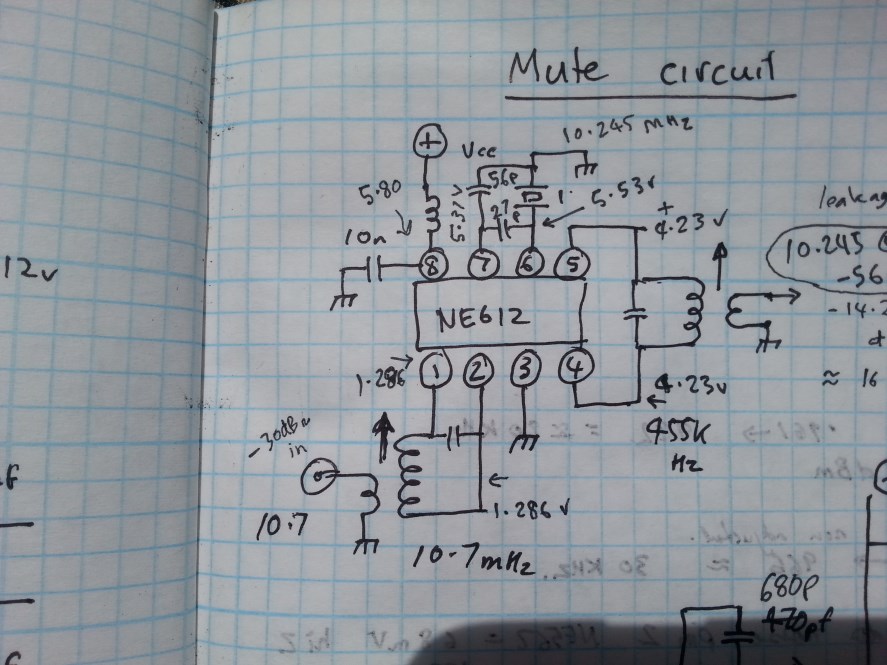 Mute circuit
10.245 mHz
Vcc
56p
5.80
5.53v
27p
4.23 v
+
10n
leakag
10.245
-56
-14.2
12v
8 7 6 5
NE612
1 2 3 4
1.286
4.23v
≈ 16
455K
Hz
-30dBm
in
1.286 v
10.7
10.7mHz
680p
470pf